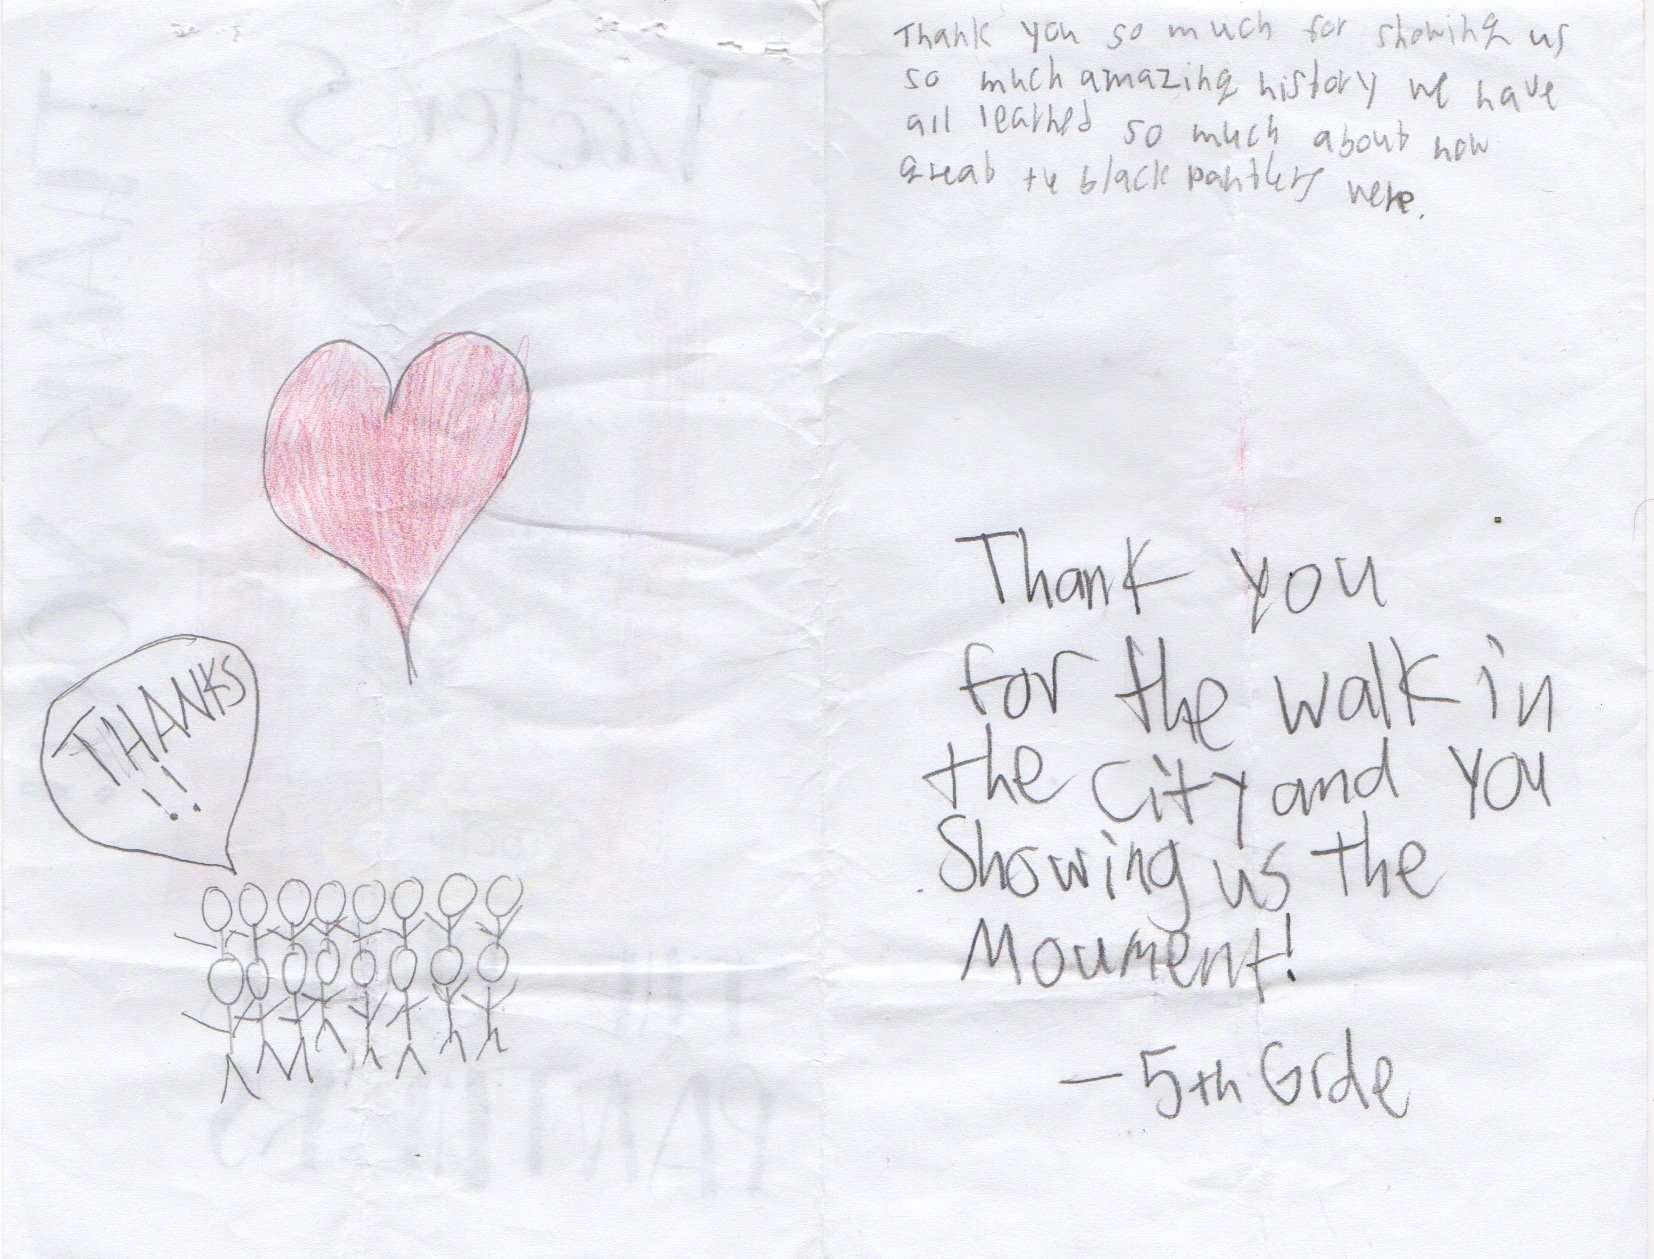 Thank you so much for showing us
so much amazing history we have
all learned so much about how
great the black panthers were.
THANKS
!!
Thank you
for the walk in
the City and you
Showing us the
Moument!
— 5th Grde